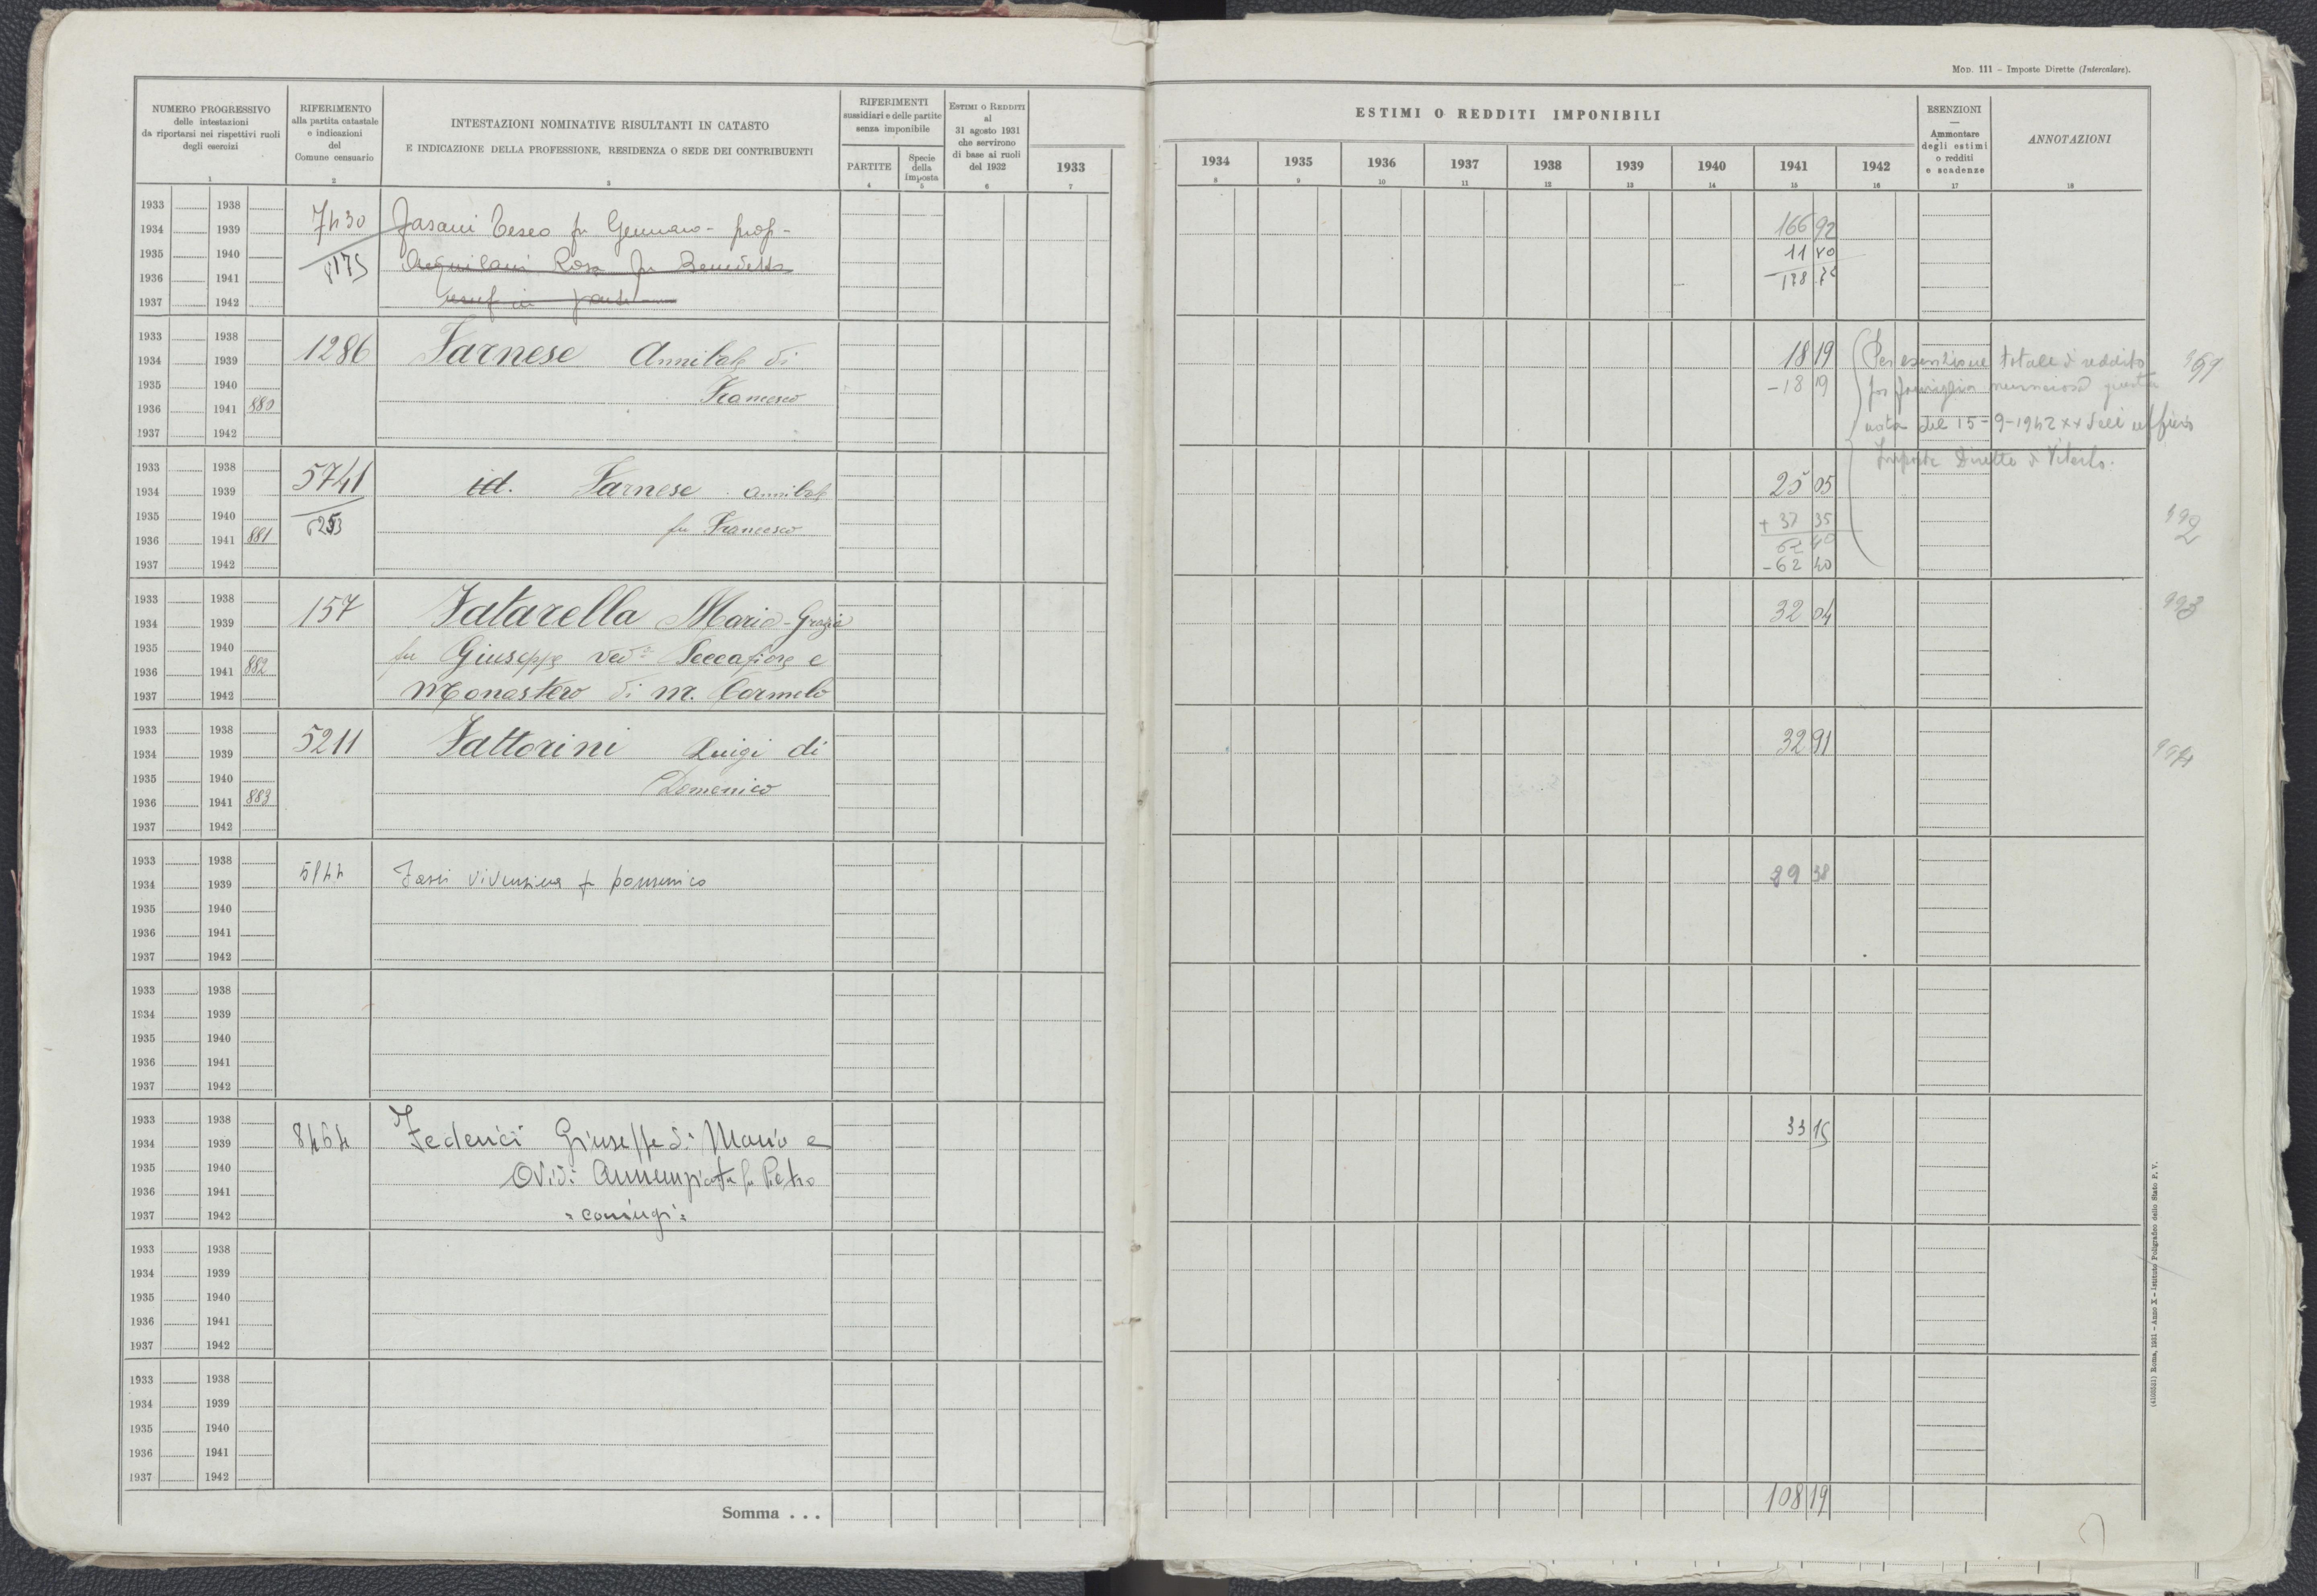 MOD. 111 – Imposte Dirette (Intercalare).
NUMERO PROGRESSIVO
delle intestazioni
da riportarsi nei rispettivi ruoli
degli esercizi
1
RIFERIMENTO
alla partita catastale
e indicazioni
del
Comune censuario
2
INTESTAZIONI NOMINATIVE RISULTANTI IN CATASTO
E INDICAZIONE DELLA PROFESSIONE, RESIDENZA O SEDE DEI CONTRIBUENTI
3
RIFERIMENTI
sussidiari e delle partite
senza imponibile
PARTITE
4
Specie
della
imposta
5
ESTIMI O REDDITI
al
31 agosto 1931
che servirono
di base ai ruoli
del 1932
6
1933
7
ESTIMI O REDDITI IMPONIBILI
1934 1935 1936 1937 1938 1939 1940 1941 1942
8 9 10 11 12 13 14 15 16
ESENZIONI
—
Ammontare
degli estimi
o redditi
e scadenze
17
ANNOTAZIONI
18
1933 1938
1934 1939 7430 Fasani Teseo fu Gennaro - prop - 166 92
1935 1940 8175 Aquilani Rosa fu Benedetto 11
1936 1941
1937 1942 usuf in parte
1933 1938
1934 1939 1286 Farnese Annibale di 18 19 Per esenzione totale di reddito
1935 1940 Francesco -18 19 per famiglia numerosa giusta
1936 1941 880 nota del 15-9-1942 XX dell'ufficio
1937 1942 Imposte Dirette di Viterbo.
1933 1938
1934 1939 5741 id. Farnese Annibale 25 05
1935 1940 6253 fu Francesco + 37 35 992
1936 1941 881 62 40
1937 1942 -62 40
1933 1938
1934 1939 157 Fatarella Maria-Grazia 32 04 993
1935 1940 fu Giuseppe ved. Seccafiore e
1936 1941 882
1937 1942 Monastero di M. Carmelo
1933 1938
1934 1939 5211 Fattorini Luigi di 32 91 994
1935 1940 Domenico
1936 1941 883
1937 1942
1933 1938
1934 1939 5144 fu Domenico 29 38
1935 1940
1936 1941
1937 1942
1933 1938
1934 1939
1935 1940
1936 1941
1937 1942
1933 1938
1934 1939 8464 Federici Giuseppe di Mario e 33 15
1935 1940 Ovidi Annunziata fu Pietro
1936 1941
1937 1942 = coniugi =
1933 1938
1934 1939
1935 1940
1936 1941
1937 1942
1933 1938
1934 1939
1935 1940
1936 1941
1937 1942
Somma . . . 108 19
(4103531) Roma, 1931 – Anno X – Istituto Poligrafico dello Stato P. V.